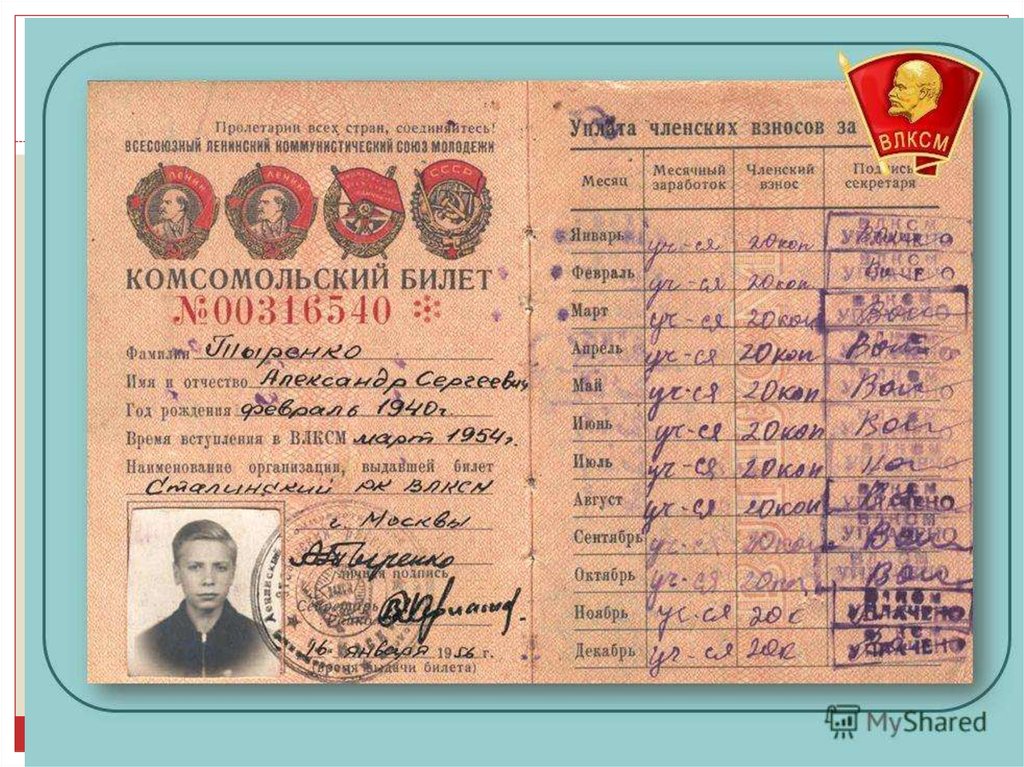 Пролетарии всех стран, соединяйтесь!
ВСЕСОЮЗНЫЙ ЛЕНИНСКИЙ КОММУНИСТИЧЕСКИЙ СОЮЗ МОЛОДЕЖИ
ЛЕНИН ЛЕНИН СССР
КОМСОМОЛЬСКИЙ БИЛЕТ
№00316540
Фамилия Тыренко
Имя и отчество Александр Сергеевич
Год рождения февраль 1940г.
Время вступления в ВЛКСМ март 1954г.
Наименование организации, выдавшей билет
Сталинский РК ВЛКСМ
г. Москвы
личная подпись
Секретарь
16 января 1956 г.
(время выдачи билета)
Уплата членских взносов за
ВЛКСМ
Месяц Месячный заработок Членский взнос Подпись секретаря
Январь уч-ся 20коп
Февраль уч-ся 20коп
Март уч-ся 20коп
Апрель уч-ся 20коп
Май уч-ся 20коп
Июнь уч-ся 20коп
Июль уч-ся 20коп
Август уч-ся 20коп
Сентябрь уч-ся 20коп
Октябрь уч-ся 20коп
Ноябрь ус-ся 20к УПЛАЧЕНО
Декабрь уч-ся 20к УПЛАЧЕНО
MyShared